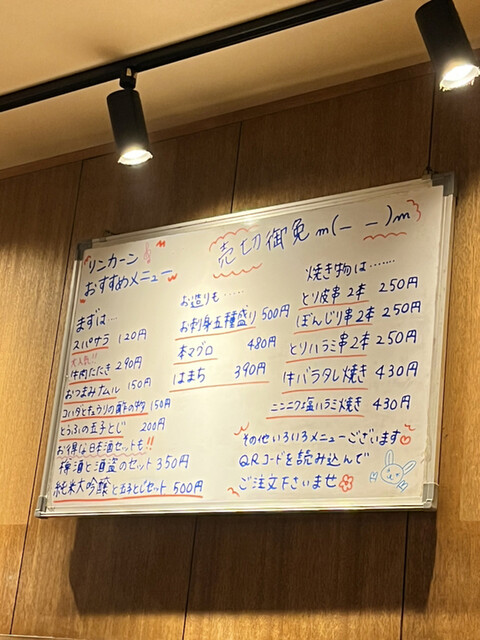 売切御免 m(－ －)m
リンカーン
おすすめメニュー
まずは…
スパサラ 120円
大人気!!
牛肉たたき 290円
おつまみナムル 150円
コハダとキュウリの酢の物 150円
とうふの玉子とじ 200円
お得な日本酒セットも!!
樽酒と酒盗のセット 350円
純米大吟醸と玉子とじセット 500円
お造りも……
お刺身五種盛り 500円
本マグロ 480円
はまち 390円
焼き物は……
とり皮串2本 250円
ぼんじり串2本 250円
とりハラミ串2本 250円
牛バラタレ焼き 430円
ニンニク塩ハラミ焼き 430円
その他いろいろメニューございます♡
QRコードを読み込んで
ご注文下さいませ